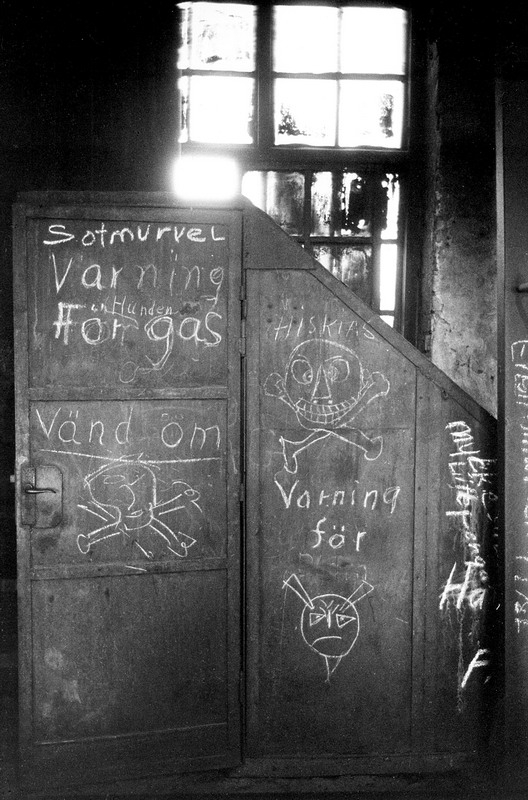 Sotmurvel
Varning
Hunden
För gas
Vänd öm
HISKIAS
Varning
för
Ha
F.